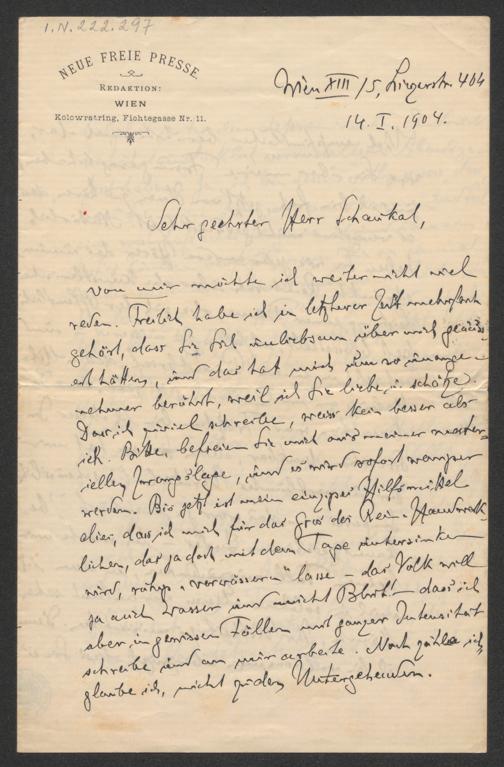 I.N. 222.297
NEUE FREIE PRESSE.
REDAKTION:
WIEN
Kolowratring, Fichtegasse Nr. 11.
Wien XIII/5, Linzerstr. 404
14. I. 1904.
Sehr geehrter Herr Schaukal,
von mir möchte ich weiter nicht viel
reden. Freilich habe ich in letzterer Zeit mehrfach
gehört, dass Sie sich unliebsam über mich geäuss-
ert hätten, und das hat mich um so unange-
nehmer berührt, weil ich Sie liebe u. schätze.
Dass ich zuviel schreibe, weiss kein besser als
ich. Bitte, befreien Sie mich aus meiner materi-
iellen Zwangslage, und es wird sofort weniger
werden. Bis jetzt ist mein einziges Hilfsmittel
dass ich mich für das Gros des Rein-Handwerk-
lichen, das ja doch mit dem Tage untersinken
wird, ruhig "verwässern" lasse – das Volk will
ja auch Wasser und nicht Blut! – dass ich
aber in gewissen Fällen mit ganzer Intensität
schreibe und an mir arbeite. Noch zähle ich,
glaube ich, nicht zu den Untergehenden.